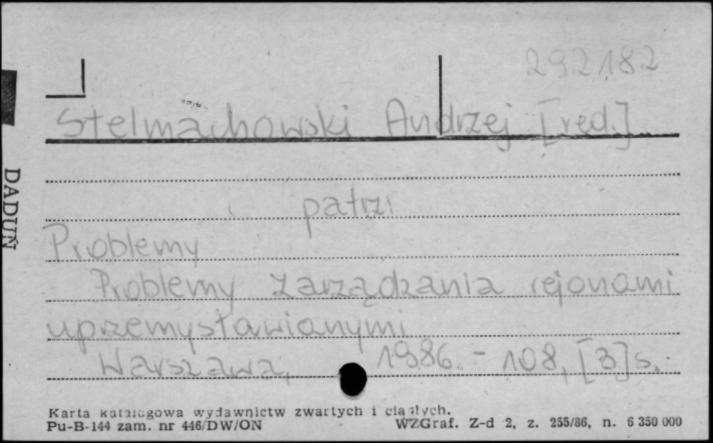 292182
Stelmachowski Andrzej [red.]
patrz:
Problemy
Problemy zarządzania rejonami
uprzemysławianymi
Warszawa, 1986. - 108, [3] s.
Karta katalogowa wydawnictw zwartych i ciągłych.
Pu-B-144 zam. nr 446/DW/ON WZGraf. Z-d 2, z. 255/86, n. 6 350 000
DADUŃ